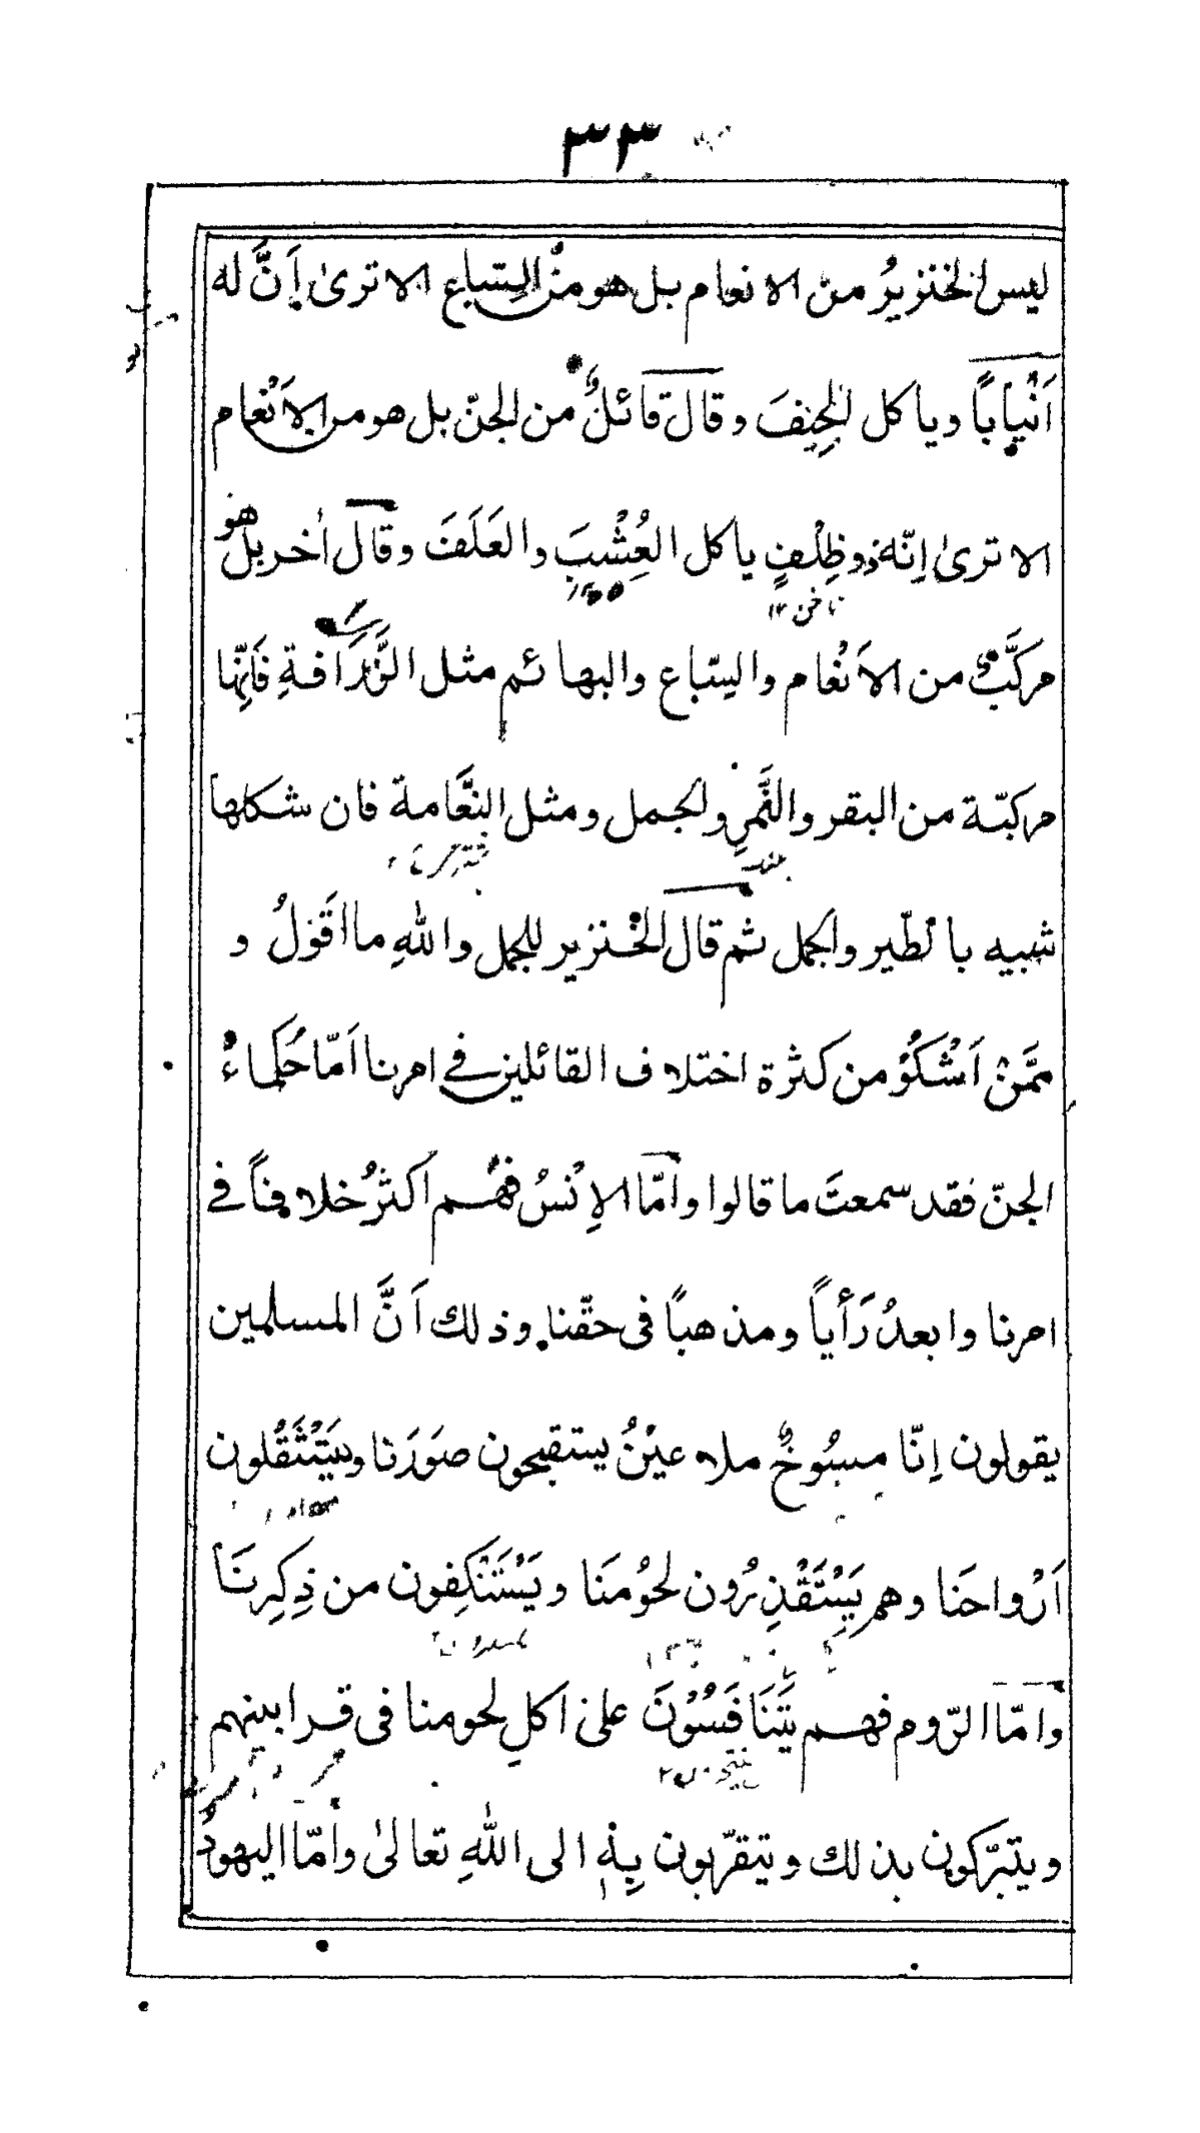 ٣٣
ليس الخنزيرُ من الانعام بل هو منْ السّباع الا ترىٰ أَنَّ له
اَنْياباً وياكل الجِيَفَ وقال قائلٌ من الجنّ بل هو من الاَنْعام
الا ترىٰ اِنّه ذو ظِلْفٍ ياكل العُشْبَ والعَلَفَ وقال اٰخر بل هو
ناخن ١٢
مركَّبٌ من الاَنْعام والسّباع والبهائم مثل الزَّرَافةِ فَاِنّها
مركبّة من البقر والنَّمِرِ والجمل ومثل النَّعَّامة فان شكلها
شبيه بالطّير والجمل ثم قال الخْنزير للجمل واللّٰهِ ما اَقَوْلُ و
ممَّنْ اَشْكُوْ من كثرة اختلاف القائلين في امرنا اَمّا حُكَماءُ
الجنّ فقد سمعتَ ما قالوا وامّا الاِنْسُ فهُم اكثرُ خلافاً في
امرنا وابعدُ رَأْياً ومذهباً فى حقّنا وذلك اَنَّ المسلمين
يقولون اِنّا مسُوخٌ ملاعينُ يستقبحون صَوَرَنا ويَسْتَثْقَلون
اَرْواحَنا وهم يَسْتَقْذِرُون لحوُمَنا ويَسْتَنْكِفون من ذِكِرِنَا
وامّا الرّوم فهم يَتَنَافَسُوْنَ علىٰ اكلِ لحومنا فى قرابينهم
ويتبرّكون بذلك ويتقرّبون بِهٖ الى اللّٰهِ تعالىٰ وامّا اليهودُ